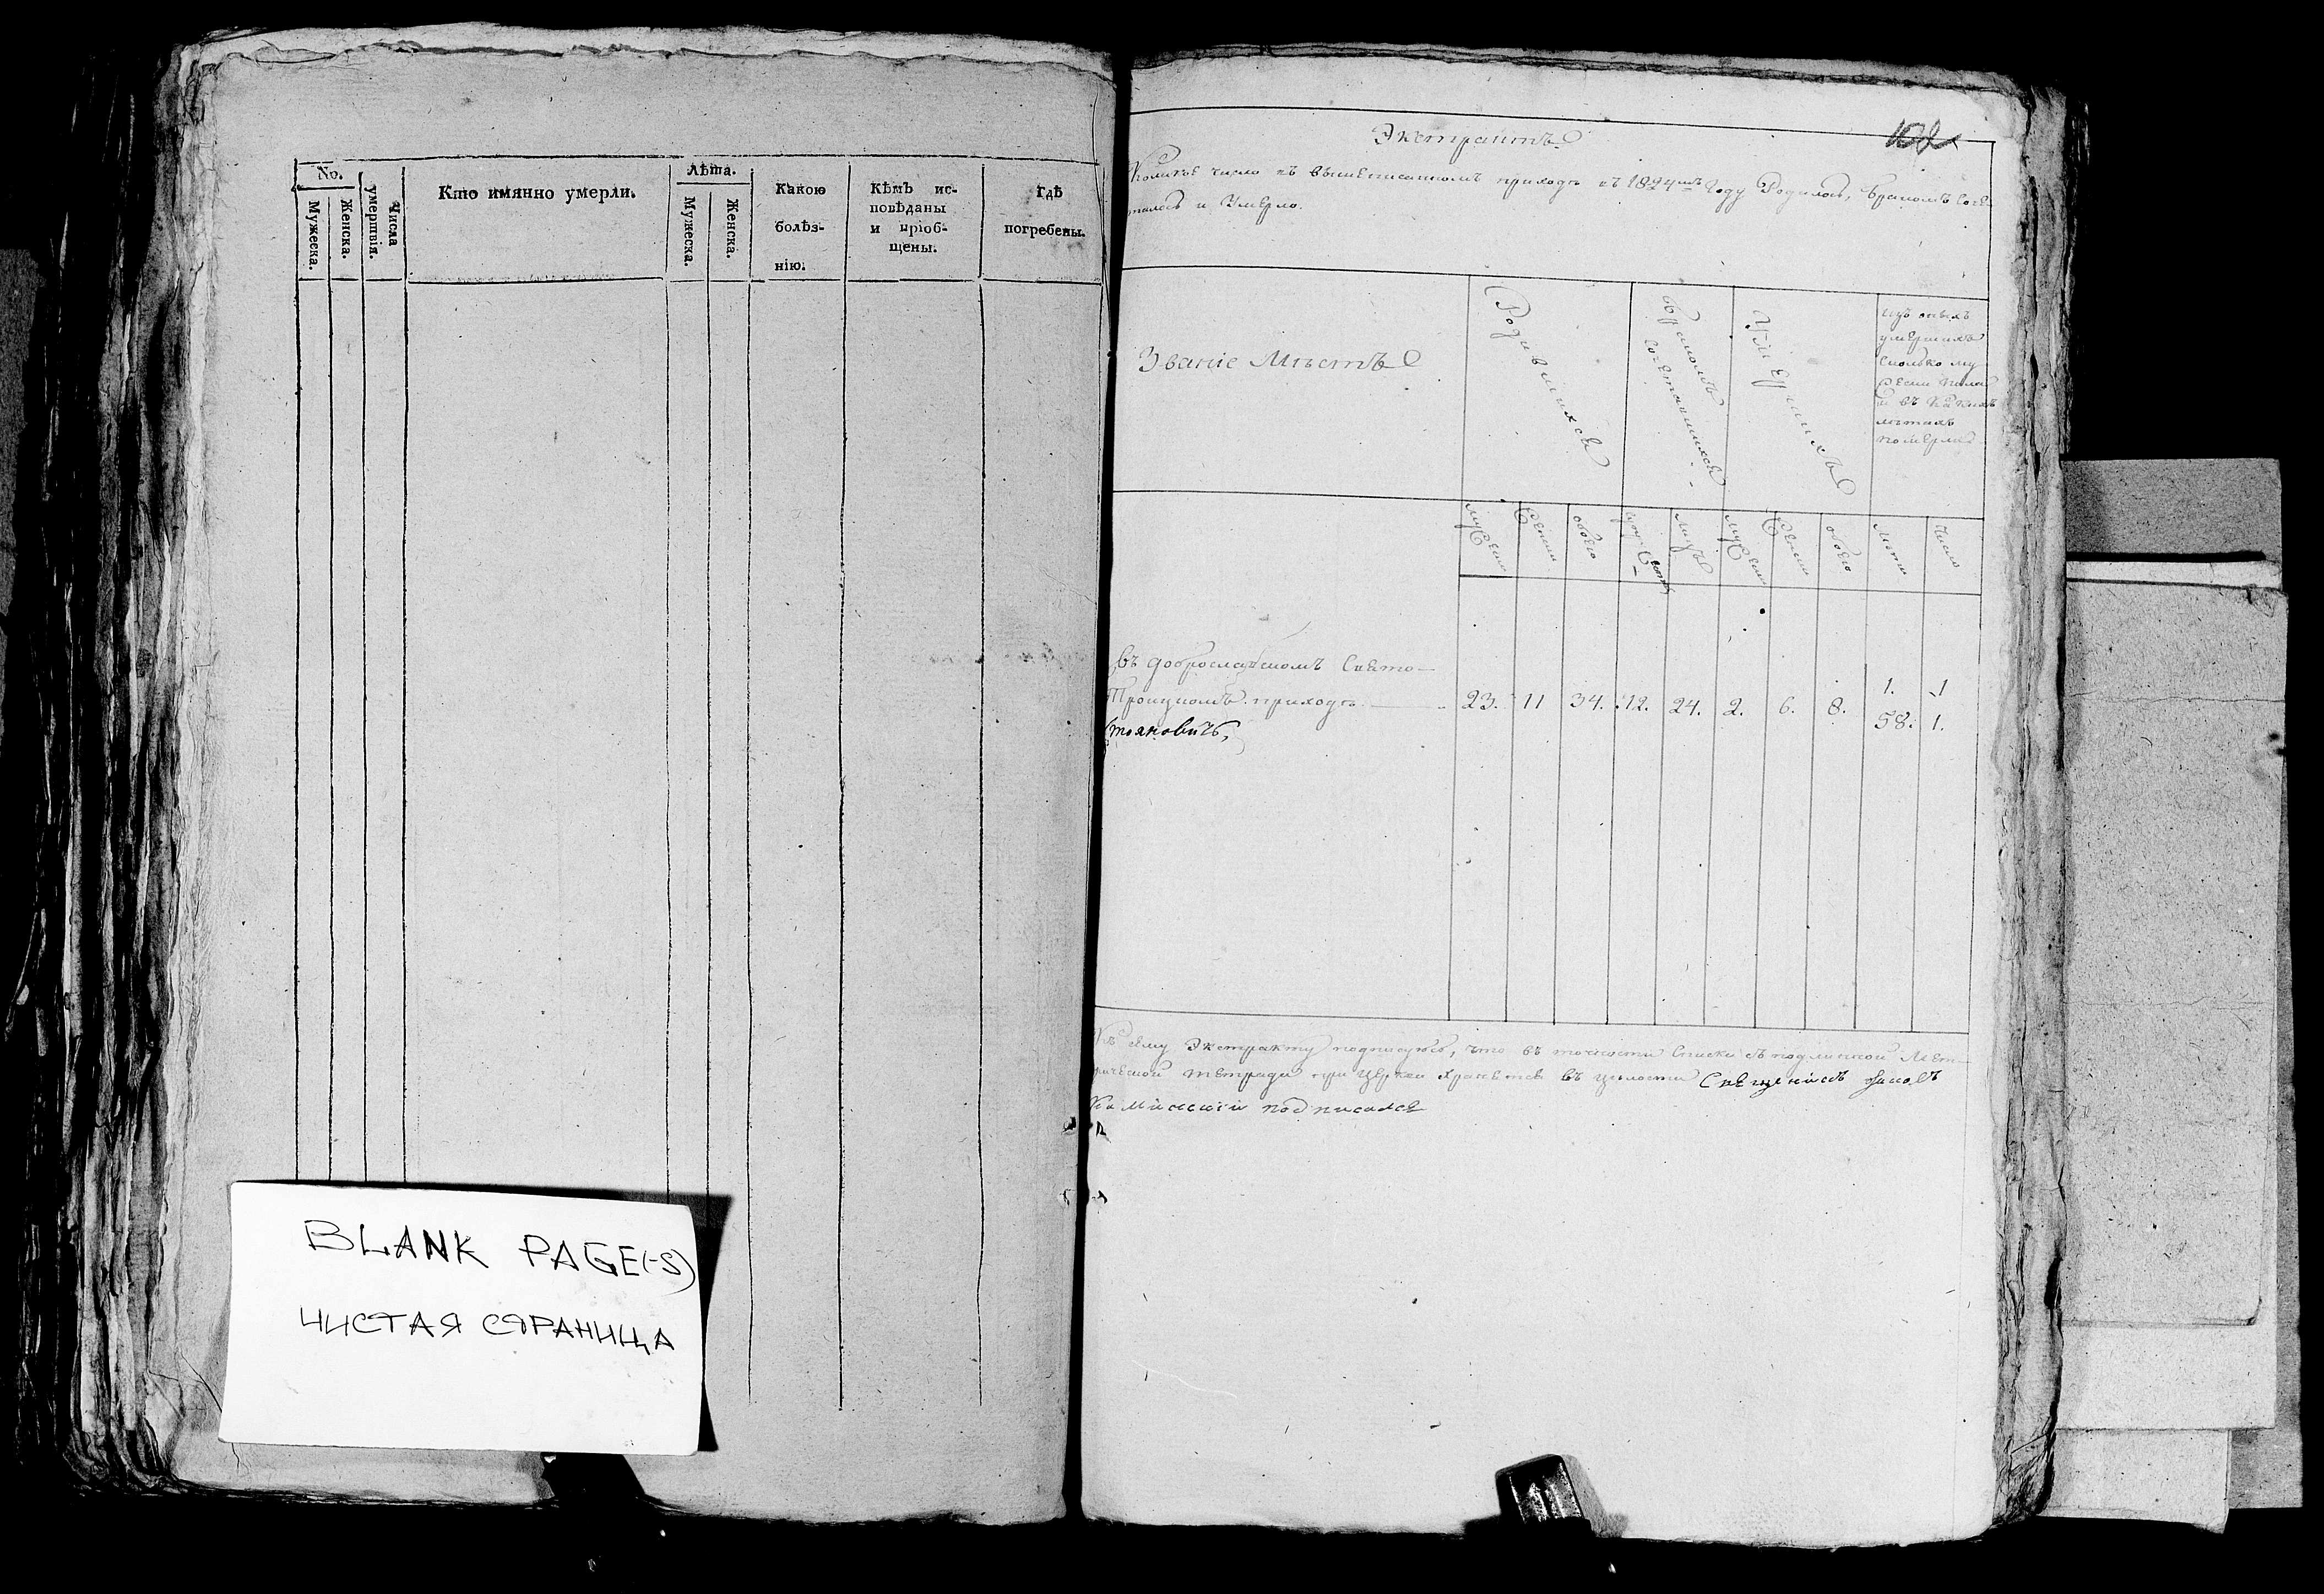 No.
Мужеска.
Женска.
Числа
умертвія.
Кто имянно умерли.
Лѣта.
Мужеска.
Женска.
Какою
болѣз-
нію.
Кѣмъ ис-
повѣданы
и пріоб-
щены.
Гдѣ
погребены.
BLANK PAGE(-S)
ЧИСТАЯ СТРАНИЦА
Экстрактъ
Коликое число въ вышеписанномъ приходѣ въ 1824мъ Году Родилось, бракомъ соче-
талось и Умерло.
Званіе Мѣстъ
Родившихся
бракомъ
сочетавшихся
Умершихъ
изъ оныхъ
умершихъ
сколько му
жеска пола
и въ какихъ
лѣтахъ
померло
мужеска
женска
обоего
лицъ
мужеска
женска
обоего
лѣта
число
въ Свято-
Троицкомъ приходѣ 23. 11 34. 12. 24. 2. 6. 8. 1. 1
58. 1.
Къ сему Экстракту подписуюсь, что въ точности Списки съ подлинной Мет-
рической тетради при Церкви хранется въ цѣлости Священикъ
подписался